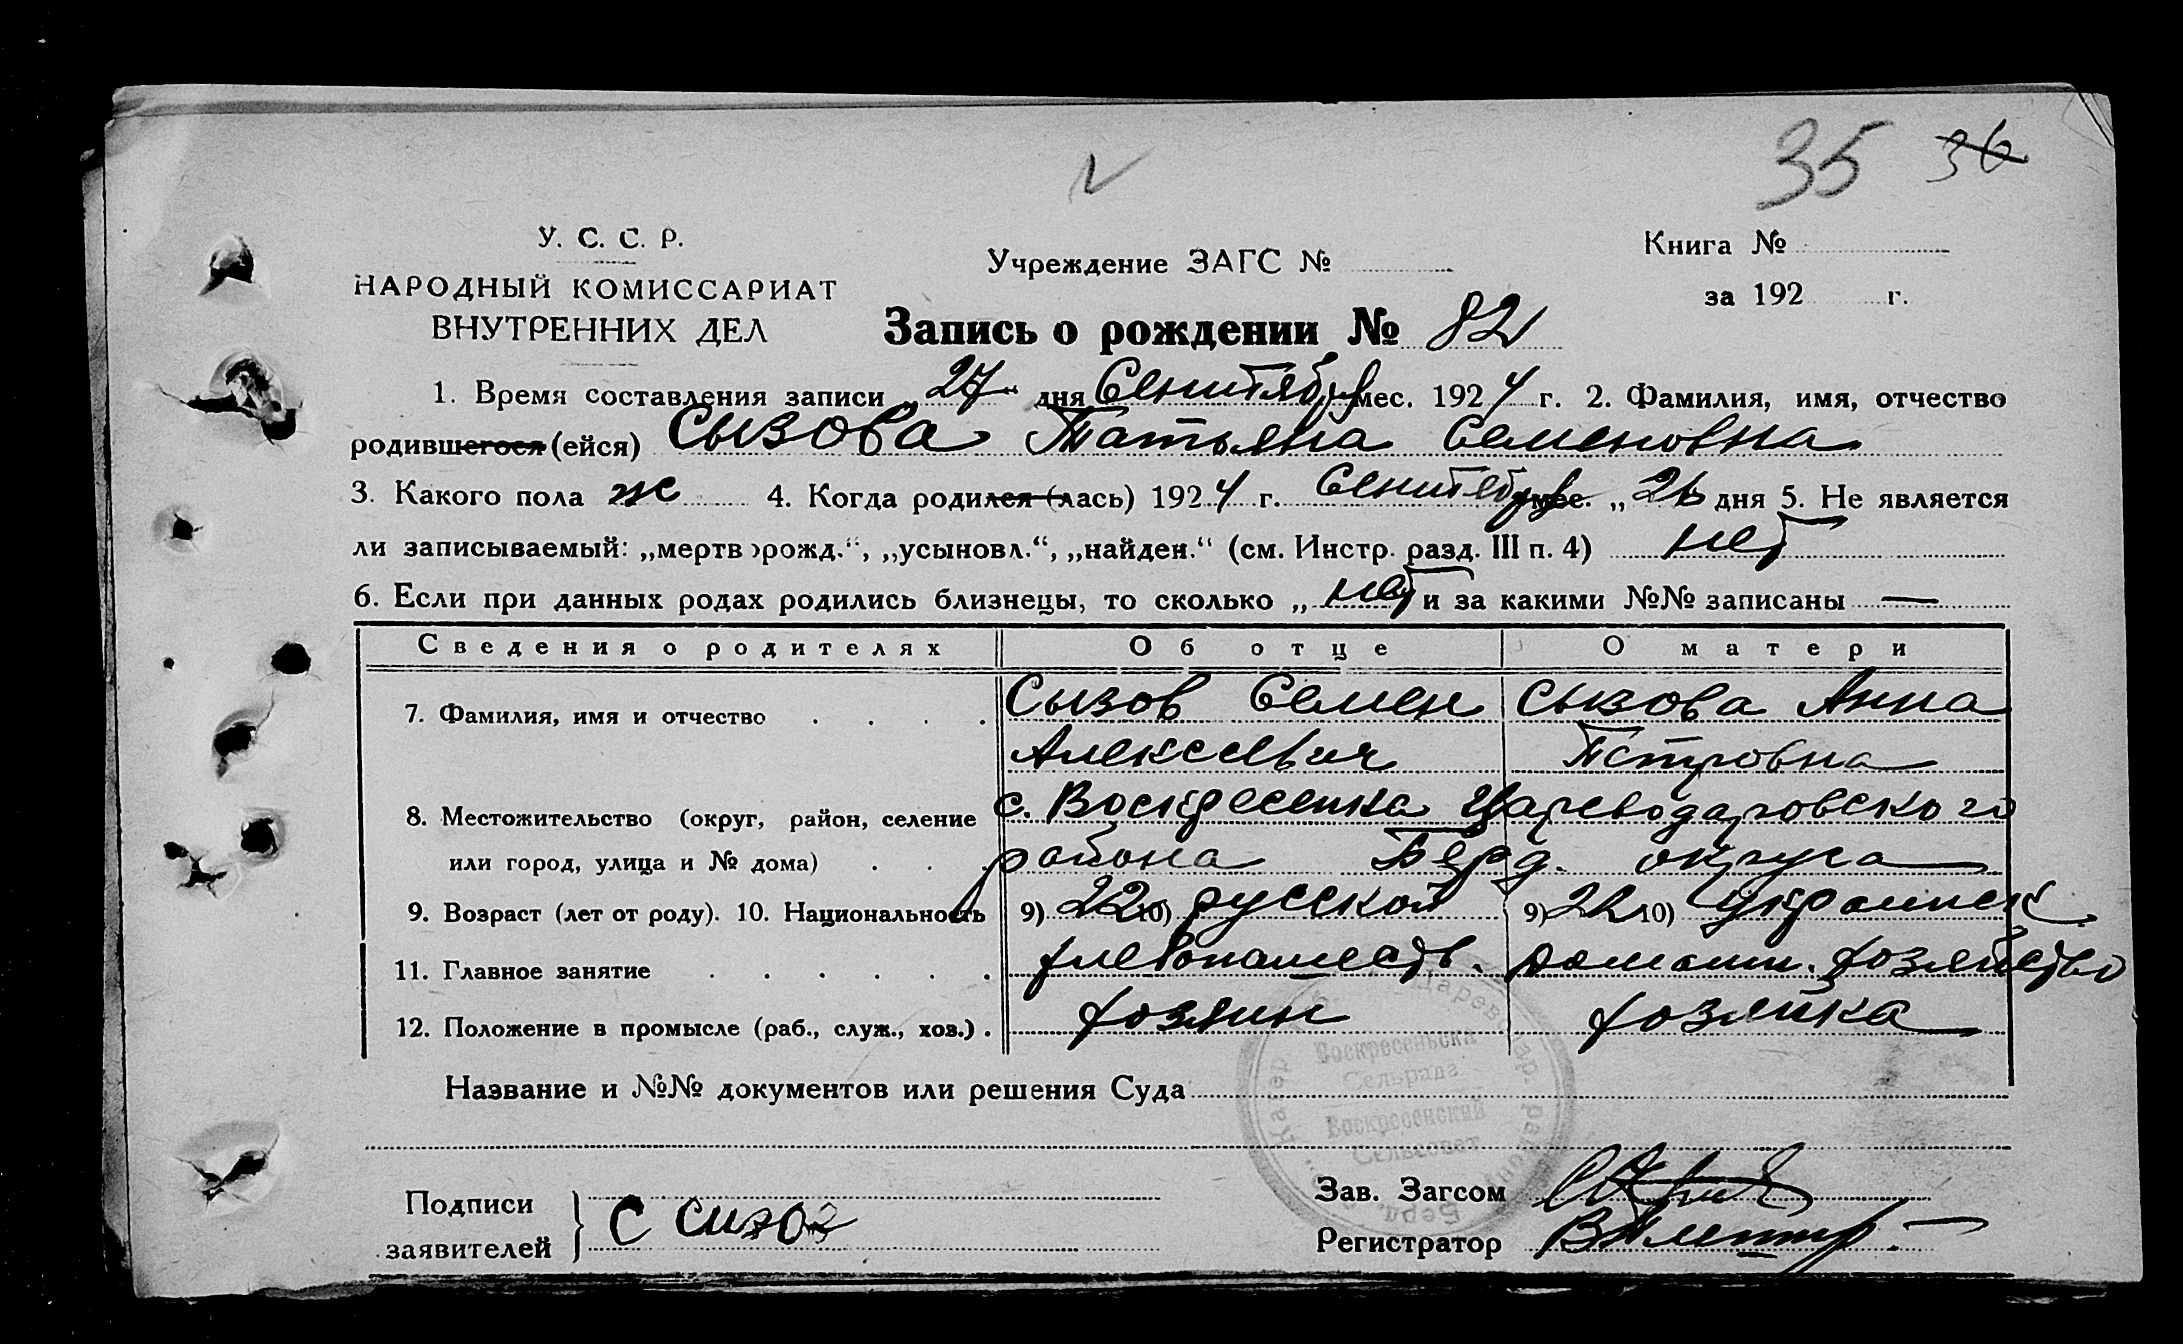 35 36
У. С. С. Р.
НАРОДНЫЙ КОМИССАРИАТ
ВНУТРЕННИХ ДЕЛ
Учреждение ЗАГС №
Книга №
за 192 г.
Запись о рождении № 82
1. Время составления записи „27“ дня Сентября мес. 1924 г. 2. Фамилия, имя, отчество
родившегося (ейся) Сызова Татьяна Семеновна
3. Какого пола ж 4. Когда родился (лась) 1924 г. Сентября мес. „26 дня 5. Не является
ли записываемый: „мертворожд.“, „усыновл.“, „найден.“ (см. Инстр. разд. III п. 4) нет
6. Если при данных родах родились близнецы, то сколько „нет и за какими №№ записаны —
Сведения о родителях Об отце О матери
7. Фамилия, имя и отчество . . . . Сызов Семен Сызова Анна
Алексеевич Петровна
8. Местожительство (округ, район, селение с. Воскресенка Цареводаровского
или город, улица и № дома) . . . района Берд. округа
9. Возраст (лет от роду). 10. Национальность 9) 22 10) русской 9) 22 10) украинск.
11. Главное занятие . . . . . . хлебопашеств. домашн. хозяйство
12. Положение в промысле (раб., служ., хоз.) . хозяин хозяйка
Название и №№ документов или решения Суда
Воскресеньска
Сельрада
Воскресенский
Сельсовет
Подписи
заявителей С Сизов
Зав. Загсом
Регистратор